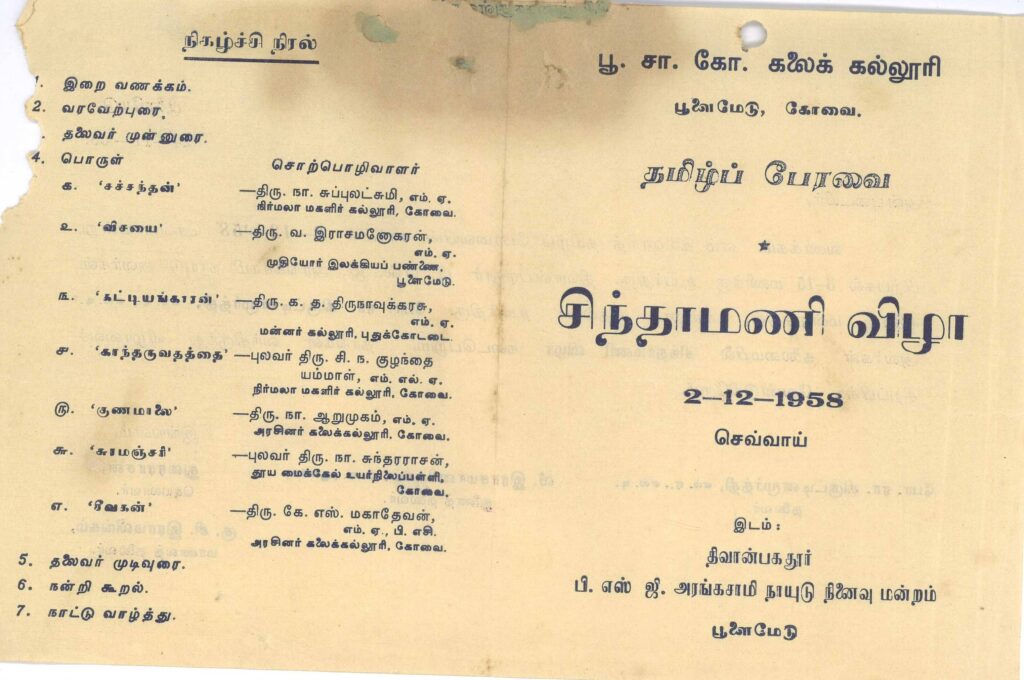 நிகழ்ச்சி நிரல்
1. இறை வணக்கம்.
2. வரவேற்புரை.
. தலைவர் முன்னுரை.
4. பொருள் சொற்பொழிவாளர்
க. ‘சச்சந்தன்’ —திரு. நா. சுப்புலட்சுமி, எம். ஏ.
நிர்மலா மகளிர் கல்லூரி, கோவை.
உ. ‘விசயை’ —திரு. வ. இராசமனோகரன்,
எம். ஏ.
முதியோர் இலக்கியப் பண்ணை,
பூளைமேடு.
ங. ‘கட்டியங்காரன்’ —திரு க. த. திருநாவுக்கரசு,
எம். ஏ.
மன்னர் கல்லூரி, புதுக்கோட்டை.
ச. ‘காந்தருவதத்தை’ —புலவர் திரு. சி. ந. குழந்தை
யம்மாள், எம். எல். ஏ.
நிர்மலா மகளிர் கல்லூரி, கோவை.
ரு. ‘குணமாலை’ —திரு. நா. ஆறுமுகம், எம். ஏ.
அரசினர் கலைக்கல்லூரி. கோவை.
சு. ‘சுரமஞ்சரி’ —புலவர் திரு. நா. சுந்தரராசன்,
தூய மைக்கேல் உயர்நிலைப்பள்ளி,
கோவை,
எ. ‘சீவகன்’ —திரு. கே. எஸ். மகாதேவன்,
எம். ஏ., பி. எசி.
அரசினர் கலைக்கல்லூரி, கோவை.
5. தலைவர் முடிவுரை.
6. நன்றி கூறல்.
7. நாட்டு வாழ்த்து.
பூ. சா. கோ. கலைக் கல்லூரி
பூளைமேடு, கோவை.
தமிழ்ப் பேரவை
சிந்தாமணி விழா
2—12—1958
செவ்வாய்
இடம் :
திவான்பகதூர்
பி. எஸ் ஜி. அரங்கசாமி நாயுடு நினைவு மன்றம்
பூளைமேடு